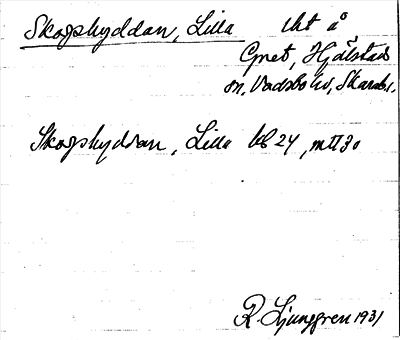 Skogshyddan, Lilla lht å
Gnet, Hjälstad
sn, Vadsbo hd, Skarabs.
Skogshyddan, Lilla hb 24, mtl 30
R. Ljunggren 1931